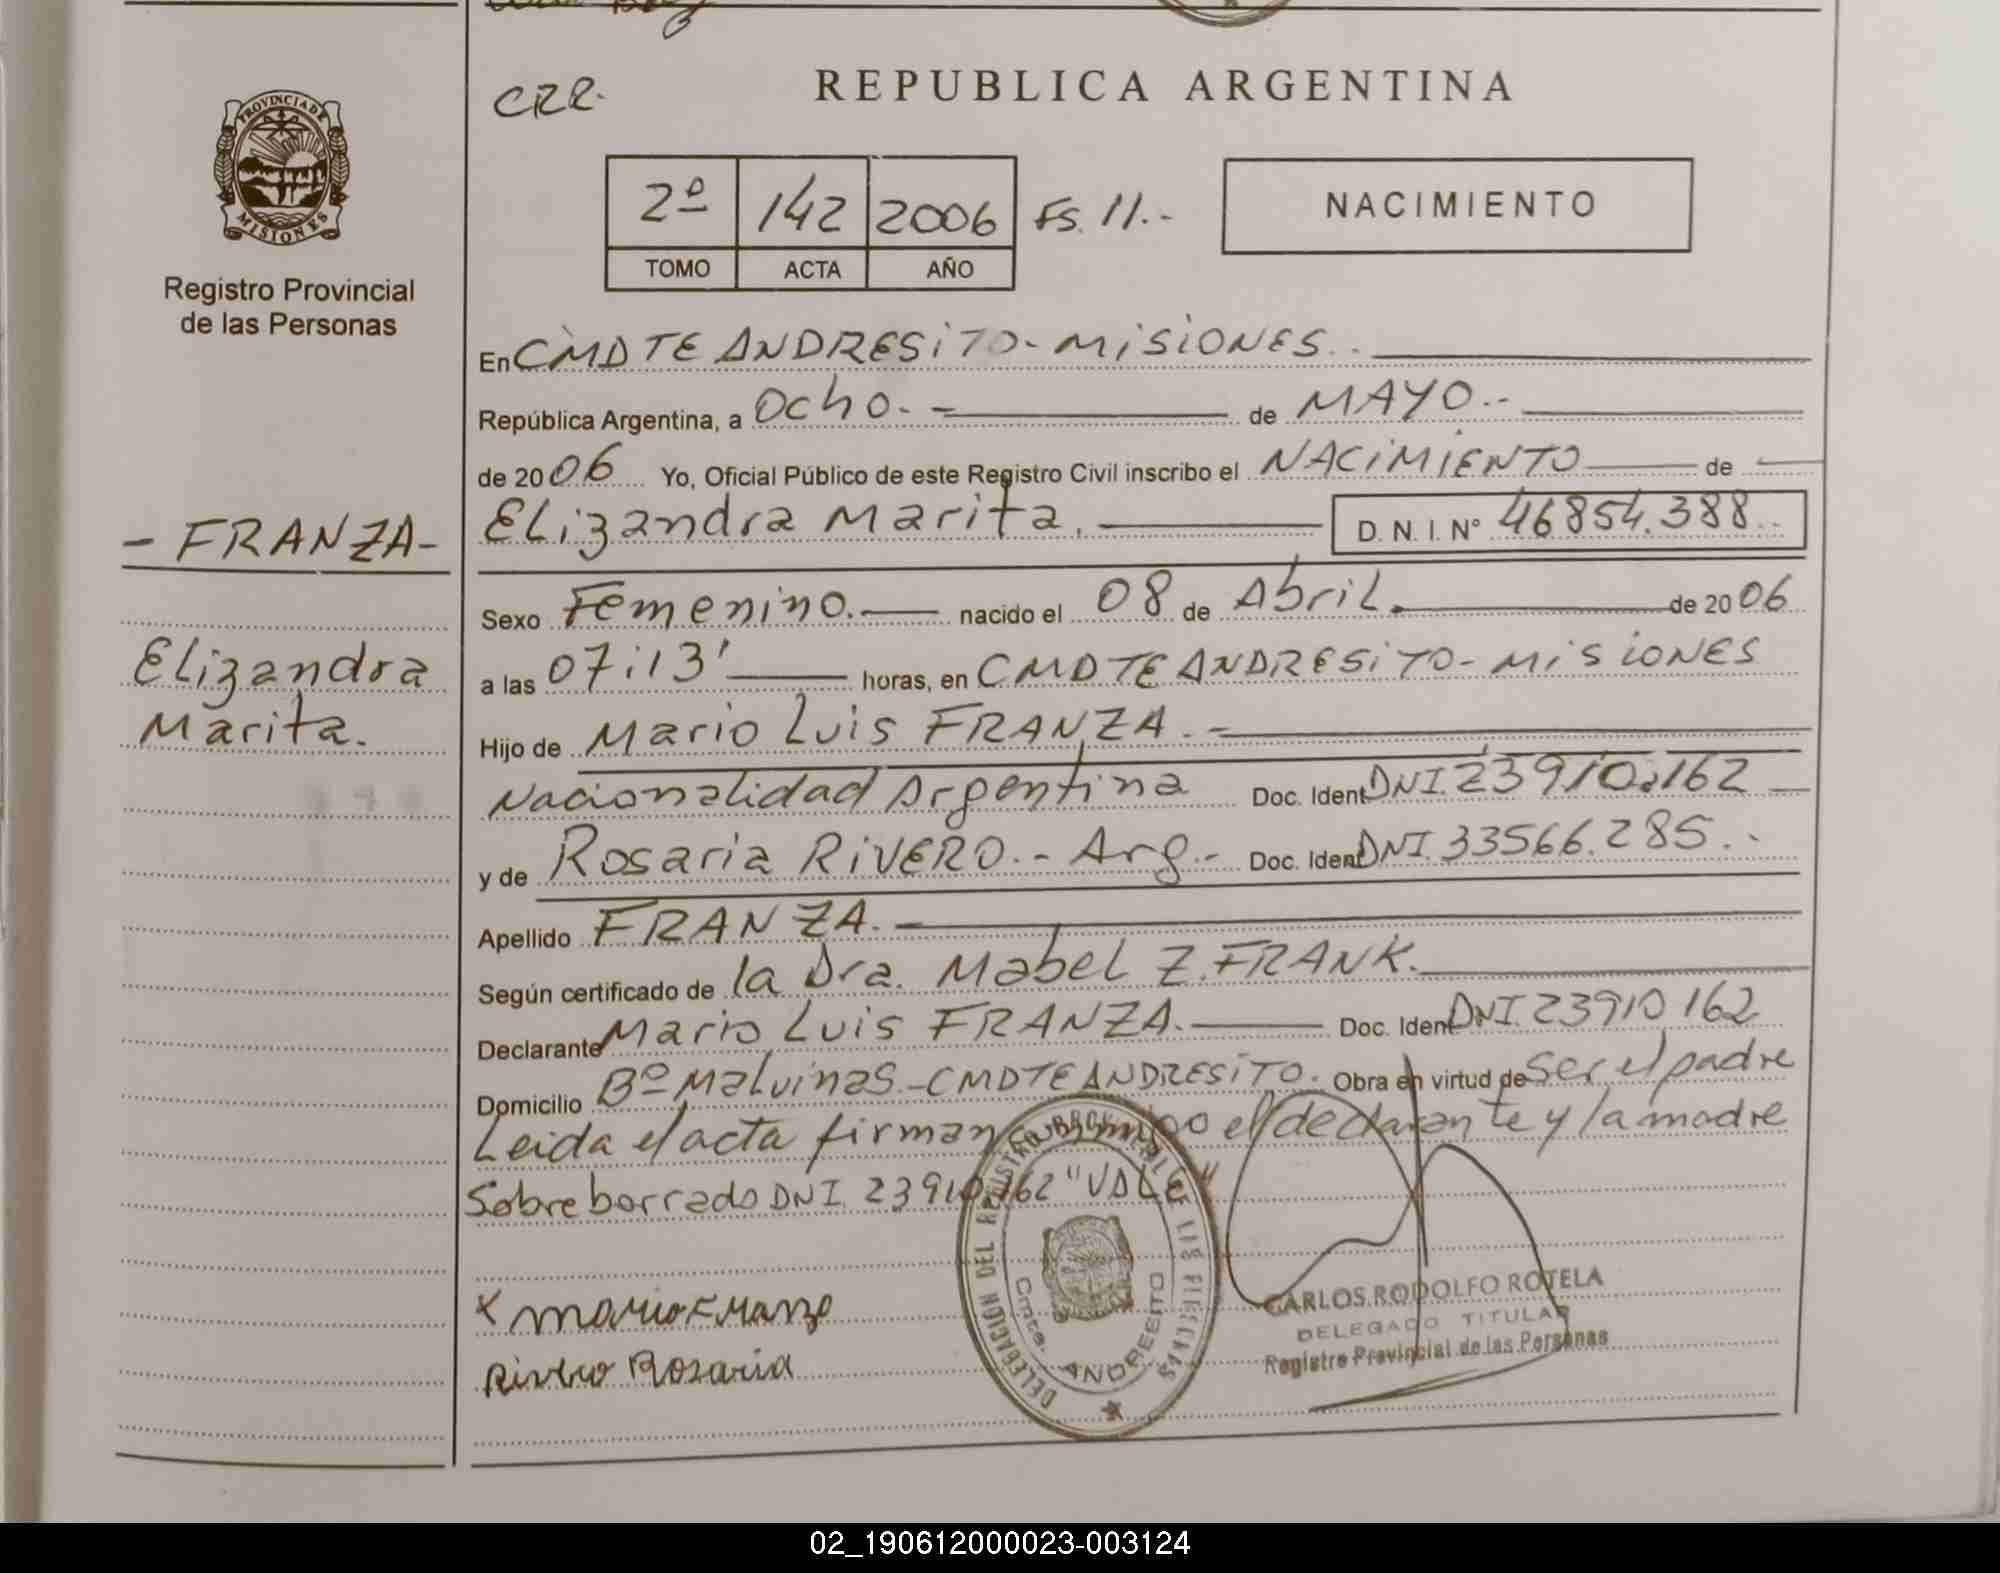 CRR.
REPUBLICA ARGENTINA
PROVINCIA DE
MISIONES
2º 142 2006 FS. 11.-
TOMO ACTA AÑO
NACIMIENTO
Registro Provincial
de las Personas
En CMDTE ANDRESITO - MISIONES. .
República Argentina, a Ocho. - de MAYO. -
de 2006 Yo, Oficial Público de este Registro Civil inscribo el NACIMIENTO de
- FRANZA -
Elizandra Marita. D. N. I. N° 46854.388
Sexo Femenino. nacido el 08 de Abril. de 2006
Elizandra
Marita.
a las 07:13' horas, en CMDTE ANDRESITO - MISIONES
Hijo de Mario Luis FRANZA. -
Nacionalidad Argentina Doc. Ident DNI. 23910.162
y de Rosaria RIVERO. - Arg. - Doc. Ident DNI. 33566.285. -
Apellido FRANZA.
Según certificado de la Dra. Mabel Z. FRANK.
Declarante Mario Luis FRANZA. Doc. Ident DNI. 23910162
Domicilio Bº Malvinas - CMDTE ANDRESITO. Obra en virtud de ser el padre
Leida el acta firman el declarante y la madre
Sobre borrado DNI. 23910.162 "VALE"
x Mario Franza
Rivero Rosaria
DELEGACION DEL REGISTRO PROVINCIAL DE LAS PERSONAS
Cmte. ANDRESITO
CARLOS RODOLFO ROTELA
DELEGADO TITULAR
Registro Provincial de las Personas
02_190612000023-003124